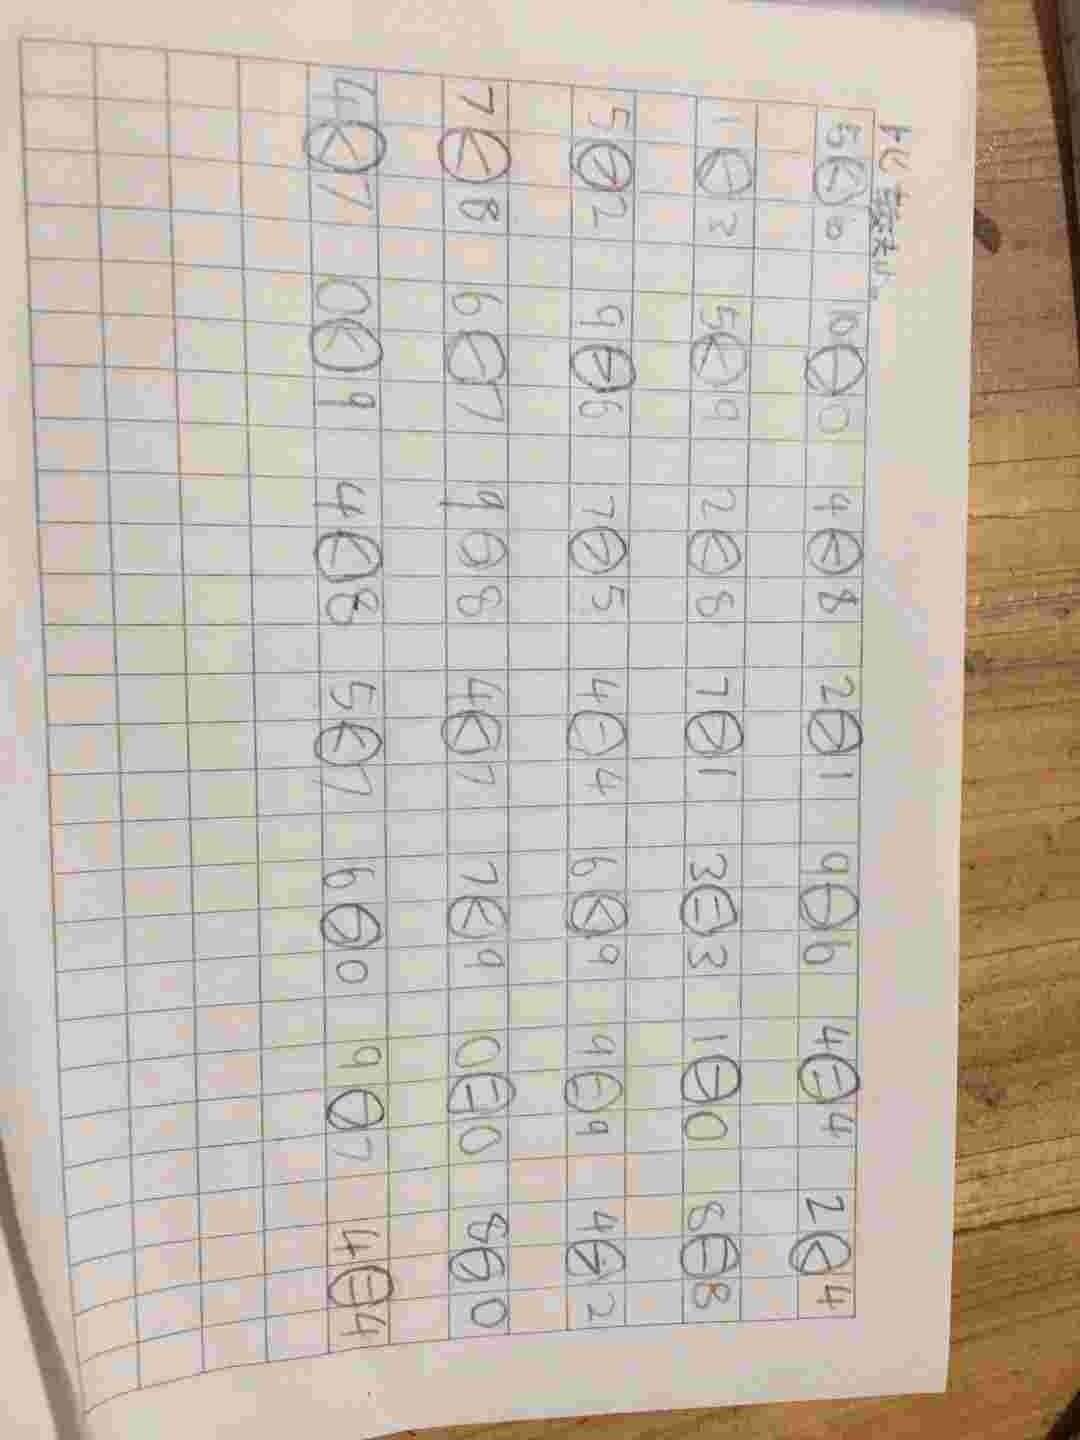 比较大小。
5<8 10>0 4<8 2>1 9>6 4=4 2<4
1<3 5<9 2<8 7>1 3=3 1>0 8=8
5>2 9>6 7>5 4=4 6<9 9=9 4>2
7<8 6<7 9>8 4<7 7<9 0=0 8>0
4<7 0<9 4<8 5<7 6>0 9>7 4=4